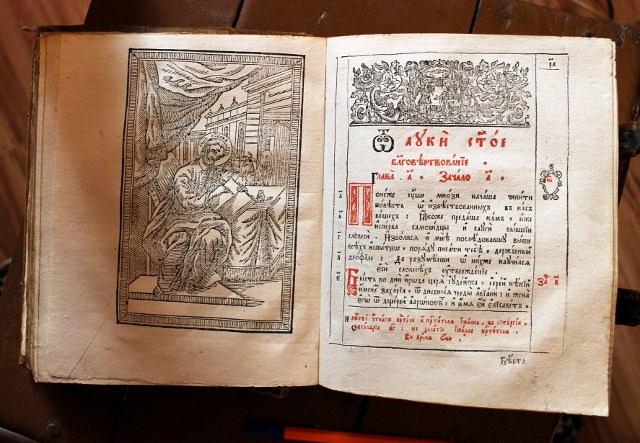 Ѿ лꙋкѝ ст҃о́е
бл҃говѣ́ствова́нїе .
Глава̀ а҃ . Зача́ло а҃ .
Поне́же ᲂу҆́бѡ мно́зи нача́ша чини́ти
по́вѣсть ѡ҆ и҆звѣ́ствованныхъ въ на́съ
ве́щехъ : ꙗ҆́коже преда́ша на́мъ , и҆̀же
и҆спе́рва самови́дцы и҆ слꙋги̑ бы́вшїи
словесѝ : И҆зво́лисѧ и҆ мнѣ̀ послѣ́довавшꙋ вы́ше
всѣ̑хъ и҆спы́тнѡ , поря́дꙋ писа́ти тебѣ̀ , держа́вный
Да разꙋмѣ́еши ѡ҆ ни́хже наꙋчи́лсѧ
є҆сѝ словесѣ́хъ ᲂу҆твержде́нїе
Бы́сть во днѝ и҆́рѡда царѧ̀ і҆ꙋде́йска , і҆ере́й нѣ́кїй
и҆́менемъ заха́рїа , ѿ дневны́ѧ чреды̀ а҆вїа́ни : и҆ жена̀
є҆гѡ̀ ѿ дще́рей а҆арѡ́новъ , и҆ и҆́мѧ є҆́й є҆лїсаве́тъ .
Во вре́мѧ ѻ҆́но
Бы́сть